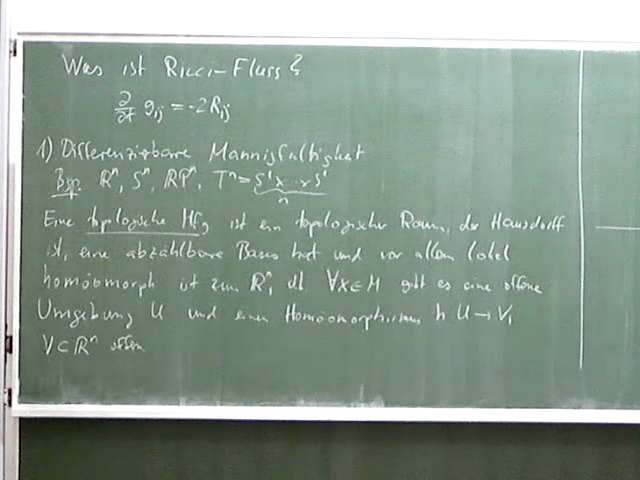 Was ist Ricci-Fluss?
∂/∂t g_ij = -2R_ij
1) Differenzierbare Mannigfaltigkeit
Bsp. ℝⁿ, Sⁿ, ℝPⁿ, Tⁿ = S¹x...xS¹
n
Eine topologische Mfg ist ein topologischer Raum, der Hausdorff
ist, eine abzählbare Basis hat und vor allem lokal
homöomorph ist zum ℝⁿ, dh ∀x∈M gibt es eine offene
Umgebung U und einen Homöomorphismus h U→V,
V⊂ℝⁿ offen